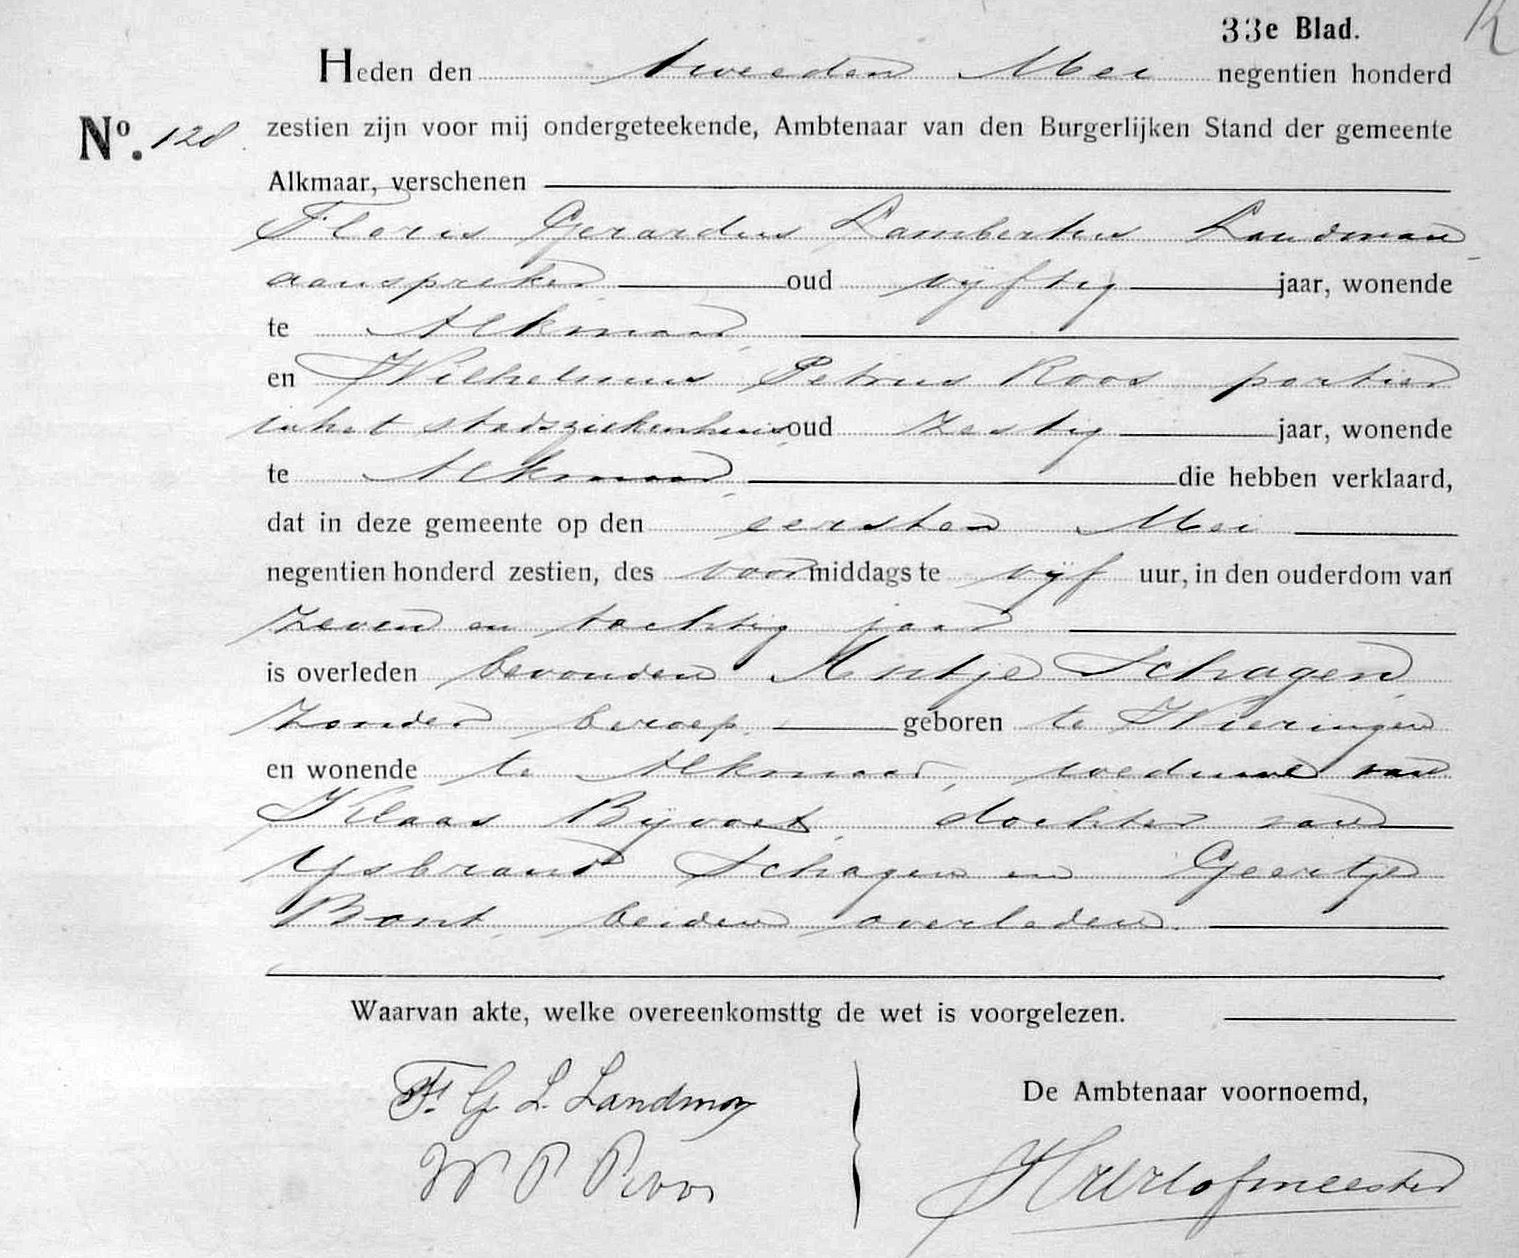 33e Blad.
Heden den tweeden Mei negentien honderd
No. 128 zestien zijn voor mij ondergeteekende, Ambtenaar van den Burgerlijken Stand der gemeente
Alkmaar, verschenen
Floris Gerardus Lambertus Landman
aanspreker oud vijftig jaar, wonende
te Alkmaar,
en Wilhelmus Petrus Roos portier
in het stadsziekenhuis, oud zestig jaar, wonende
te Alkmaar, die hebben verklaard,
dat in deze gemeente op den eersten Mei
negentien honderd zestien, des voormiddags te vijf uur, in den ouderdom van
zeven en tachtig jaar
is overleden bevonden Antje Schagen,
zonder beroep, geboren te Wieringen
en wonende te Alkmaar, weduwe van
Klaas Bijvoet, dochter van
Ysbrand Schagen en Geertje
Bont, beiden overleden.
Waarvan akte, welke overeenkomsttg de wet is voorgelezen.
De Ambtenaar voornoemd,
F. G. L. Landman
W P Roos